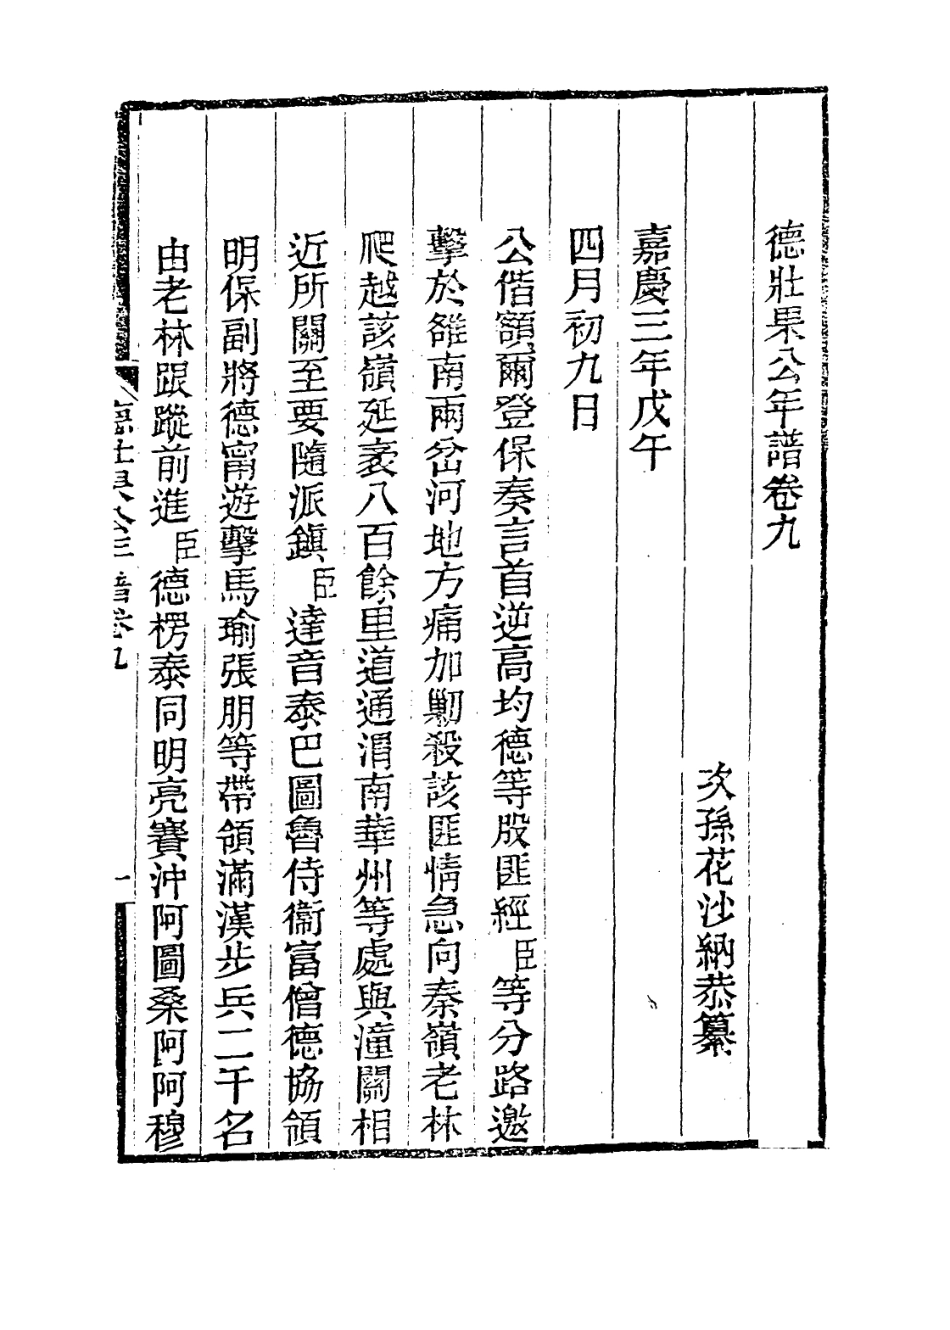 德壯果公年譜卷九
次孫花沙納恭纂
嘉慶三年戊午
四月初九日
公偕額爾登保奏言首逆高均德等股匪經臣等分路邀
擊於雒南兩岔河地方痛加勦殺該匪情急向秦嶺老林
爬越該嶺延袤八百餘里道通渭南華州等處與潼關相
近所關至要隨派鎭臣達音泰巴圖魯侍衞富僧德協領
明保副將德甯遊擊馬瑜張朋等帶領滿漢步兵二千名
由老林跟蹤前進臣德楞泰同明亮賽沖阿圖桑阿阿穆
德壯果公年譜卷九
一